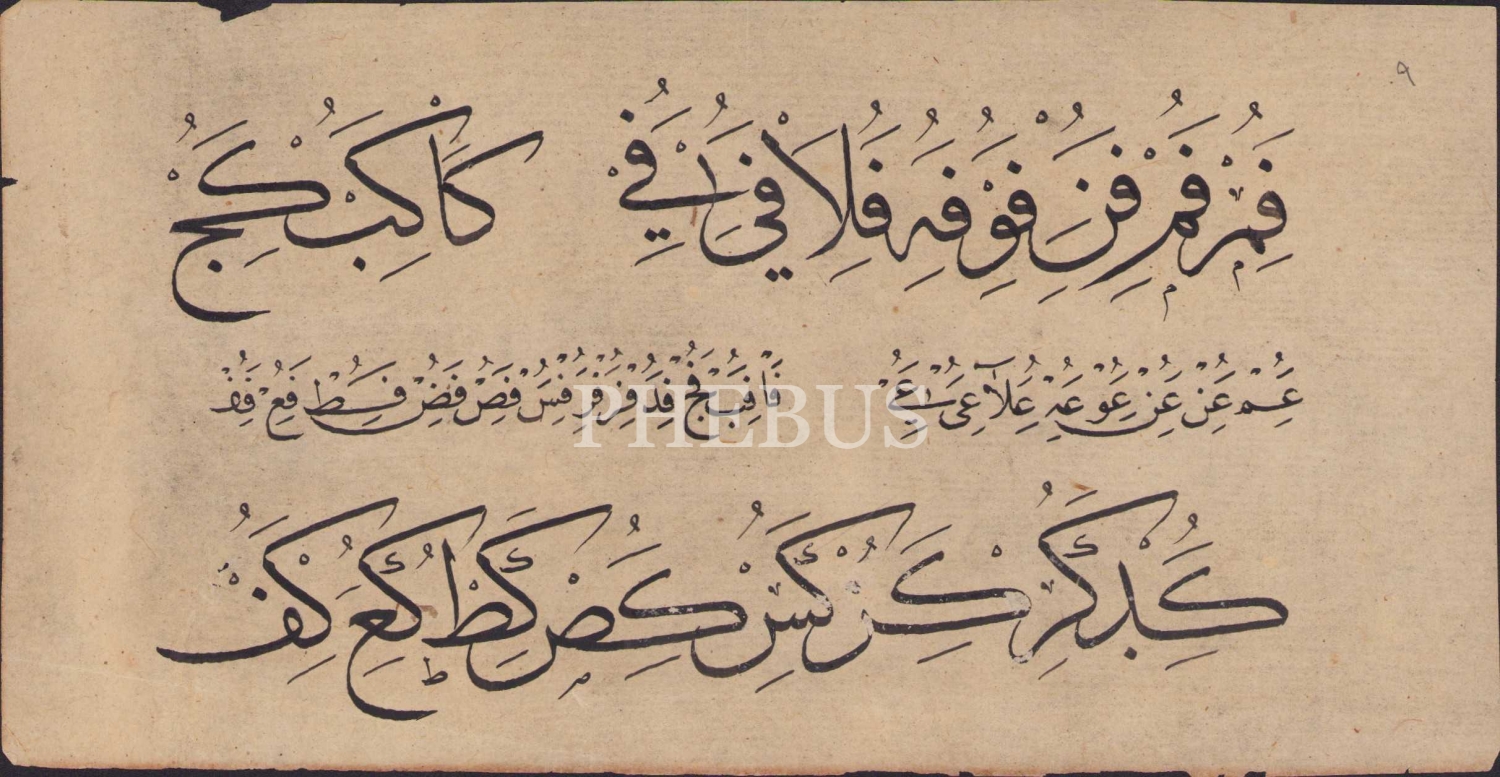 ٩
فم فم فن فو فه فلا فى في كا كب كج
عم عن عن عو عه علا عى عي فا فب فج فد فر فر فس فص فض فط فع فف
كد كر كس كس كص كط كع كف
PHEBUS